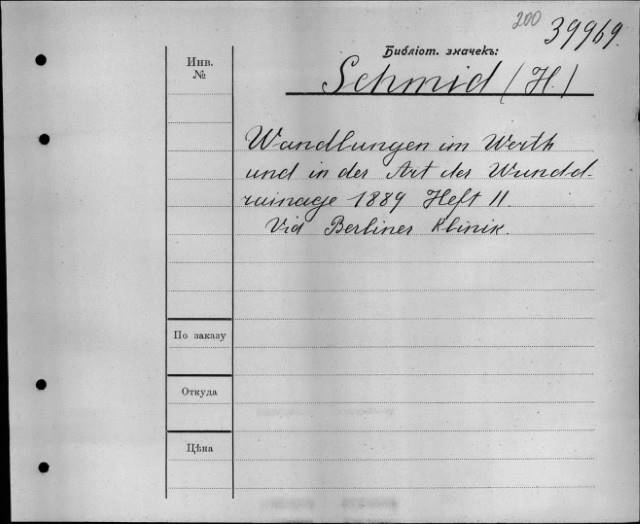 200 39969.
Библіот. значекъ:
Schmid (H.)
Инв.
№
Wandlungen im Werth
und in der Art der Wundd-
rainage 1889 Heft 11.
Vid Berliner Klinik.
По заказу
Откуда
Цѣна